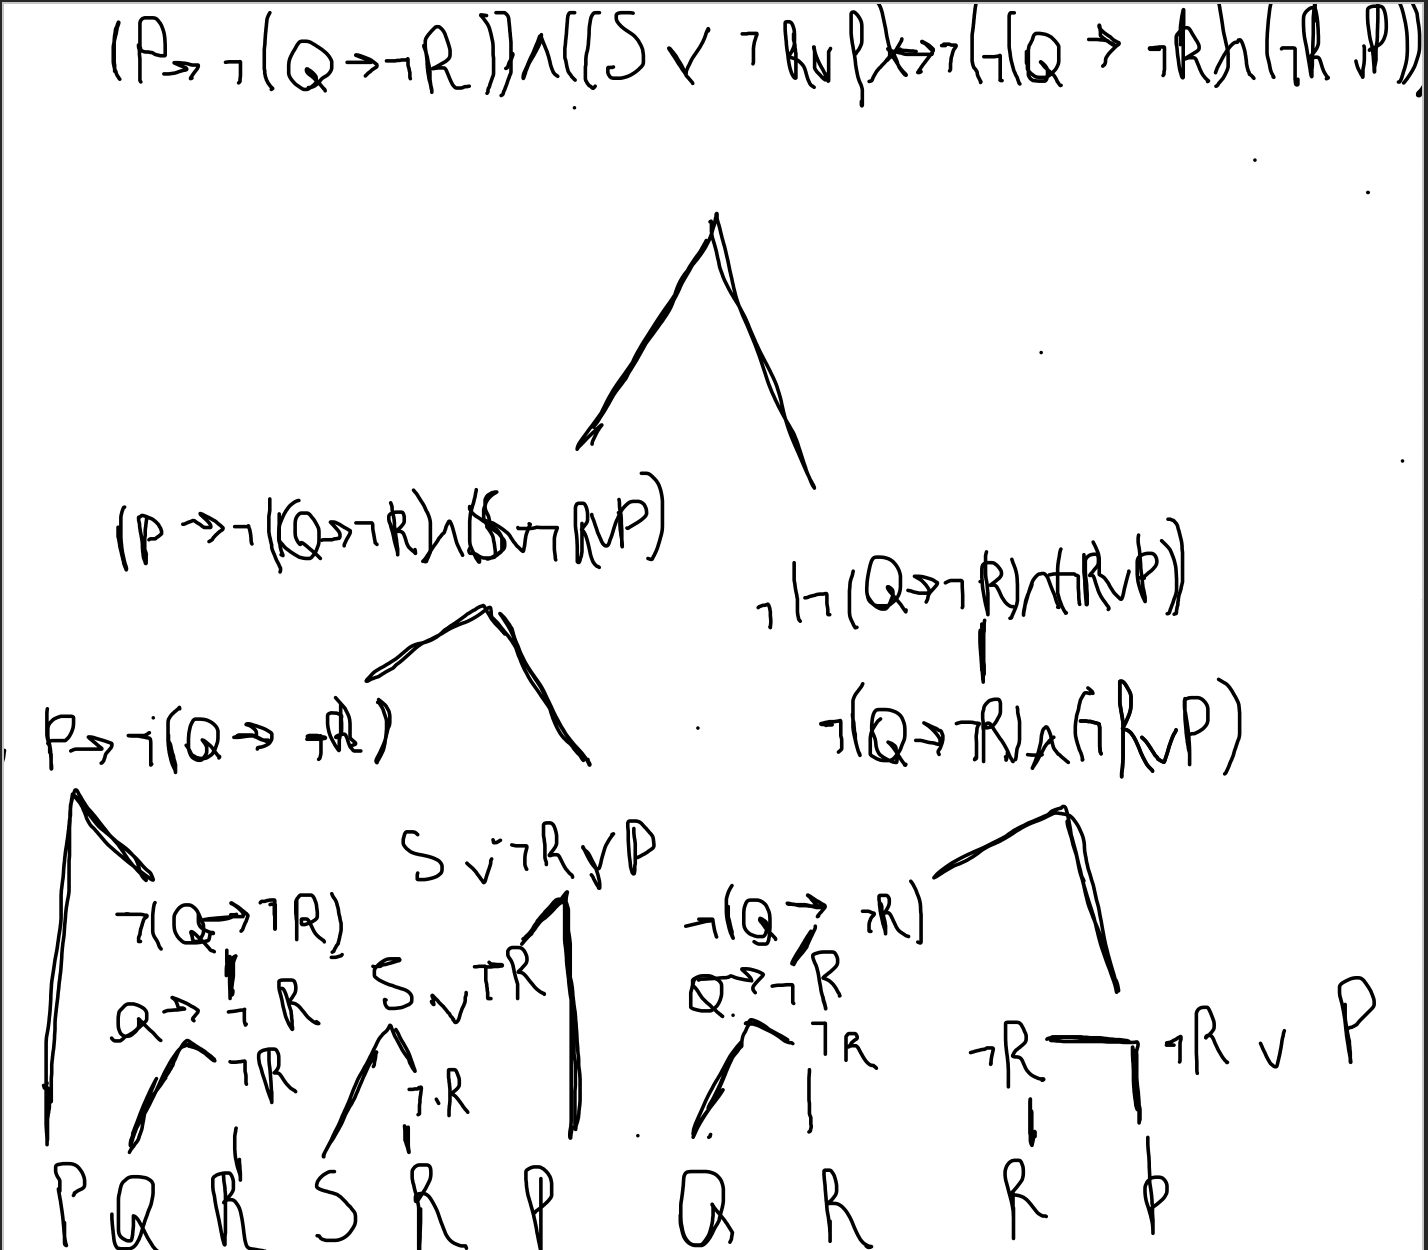 (P→¬(Q→¬R))∧((S∨¬R∨P)↔¬(¬(Q→¬R)∧(¬R∨P))
(P→¬((Q→¬R)∧(S∨¬R∨P)
¬(¬(Q→¬R)∧(¬R∨P))
P→¬(Q→¬R)
¬(Q→¬R)∧(¬R∨P)
S∨¬R∨P
¬(Q→¬R)
¬(Q→¬R)
S∨¬R
Q→¬R
Q→¬R
¬R
¬R∨P
¬R
¬R
¬R
P Q R S R P Q R R P